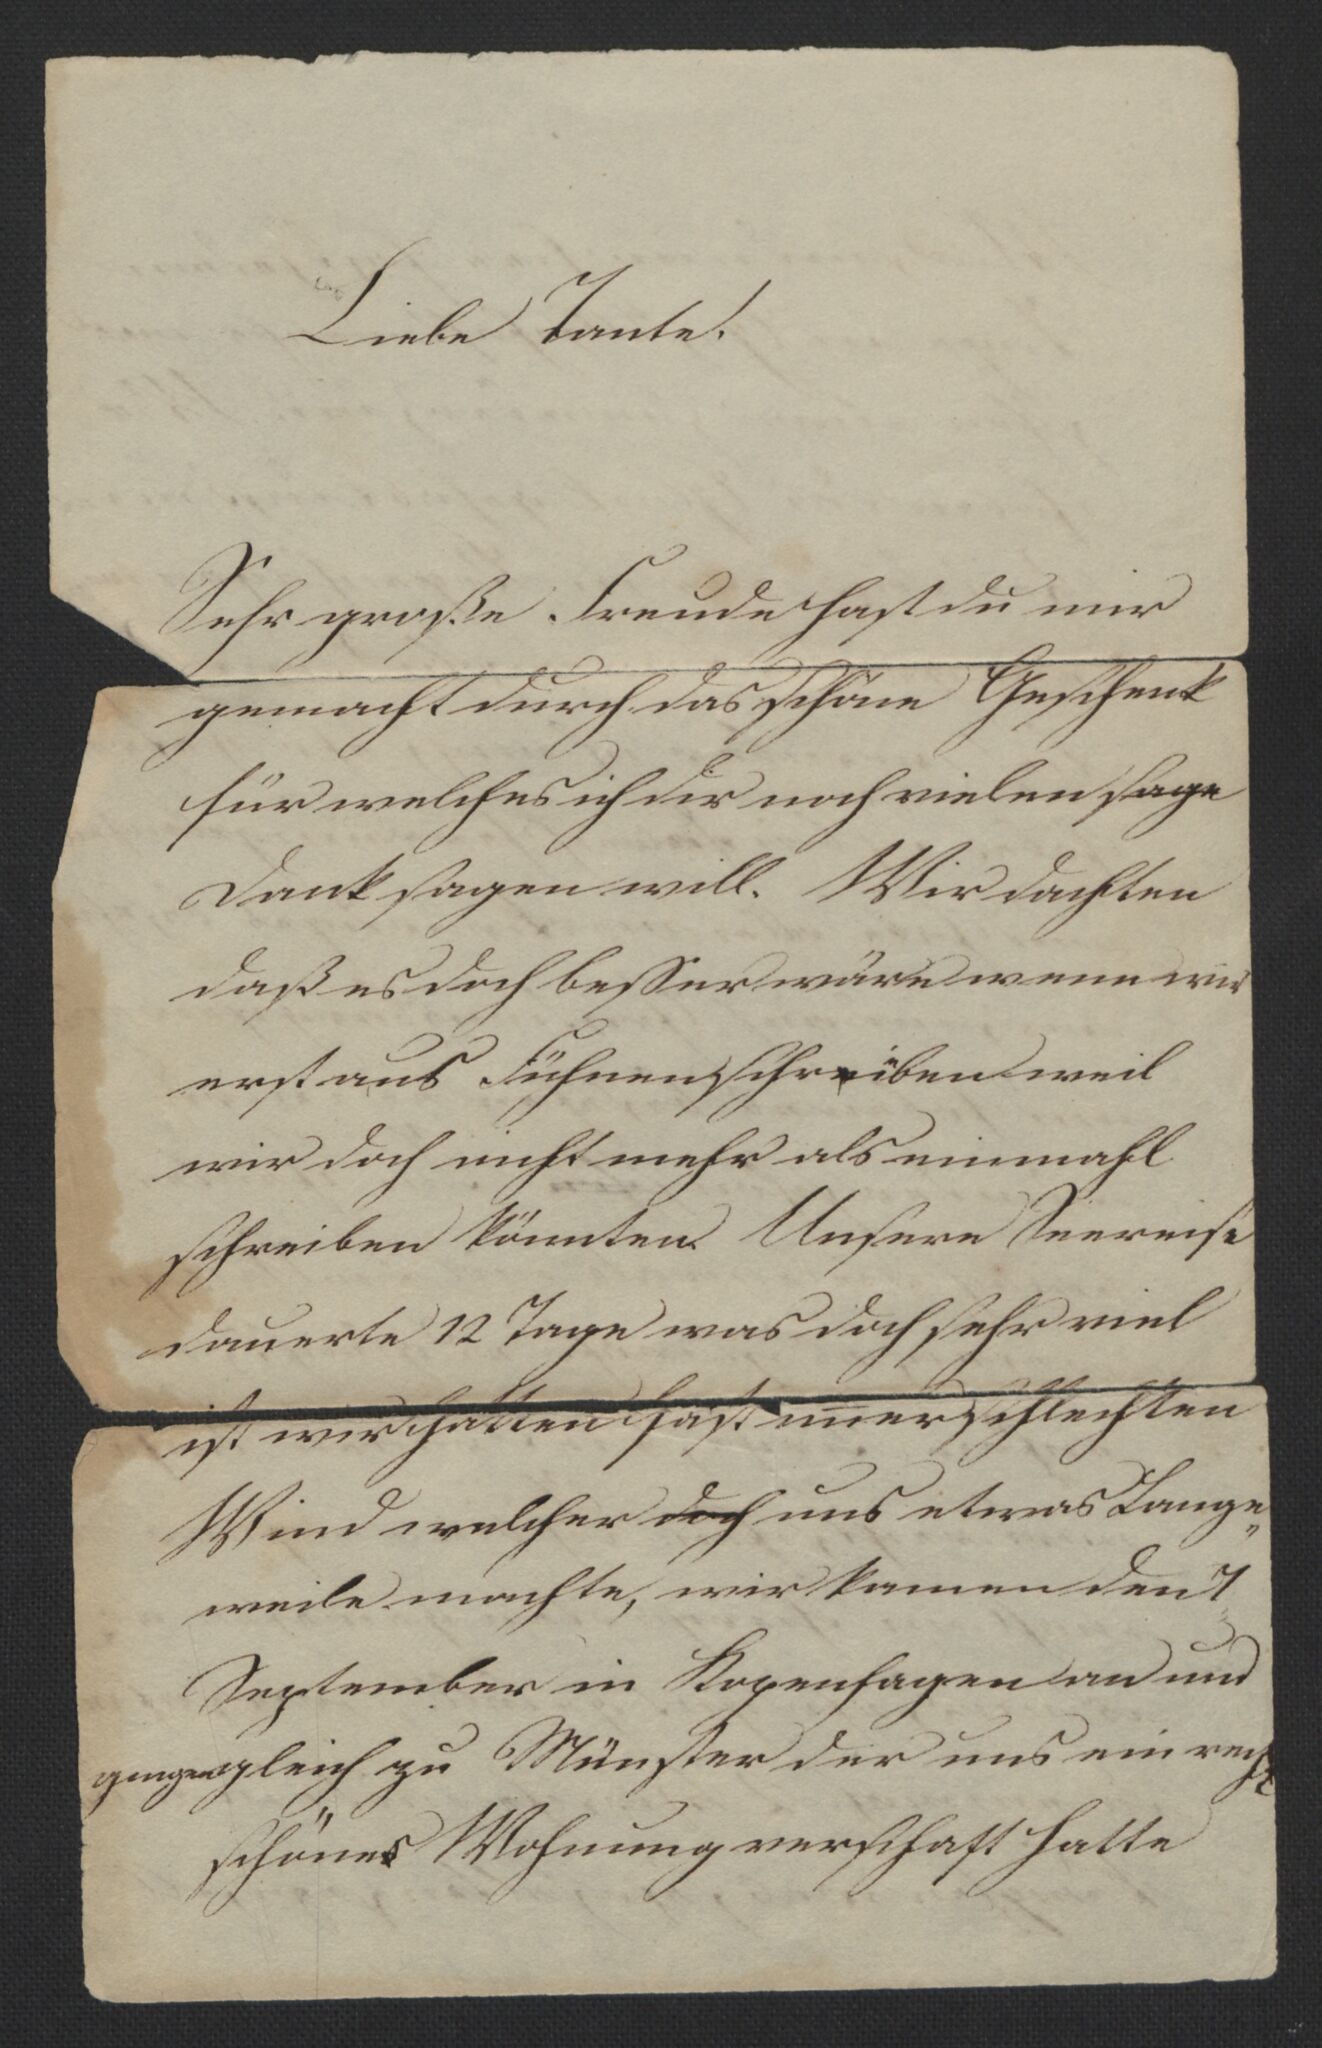 Liebe Tante!
Sehr große Freude hast du mir
gemacht durch das schöne Geschenk
für welches ich dir noch vielen sage
Dank sagen will. Wir dachten
daß es doch besser wäre wenn wir
erst aus Fühnen schreiben weil
wir doch nicht mehr als einmahl
schreiben könnten. Unsere Seereise
dauerte 12 Tage was doch sehr viel
ist wir hatten fast immer schlechten
Wind welcher doch uns etwas Lange„
weile machte, wir kamen den 7
September in Kopenhagen an und
gingen gleich zu Münster der uns ein recht
schönes Wohnung verschaft hatte